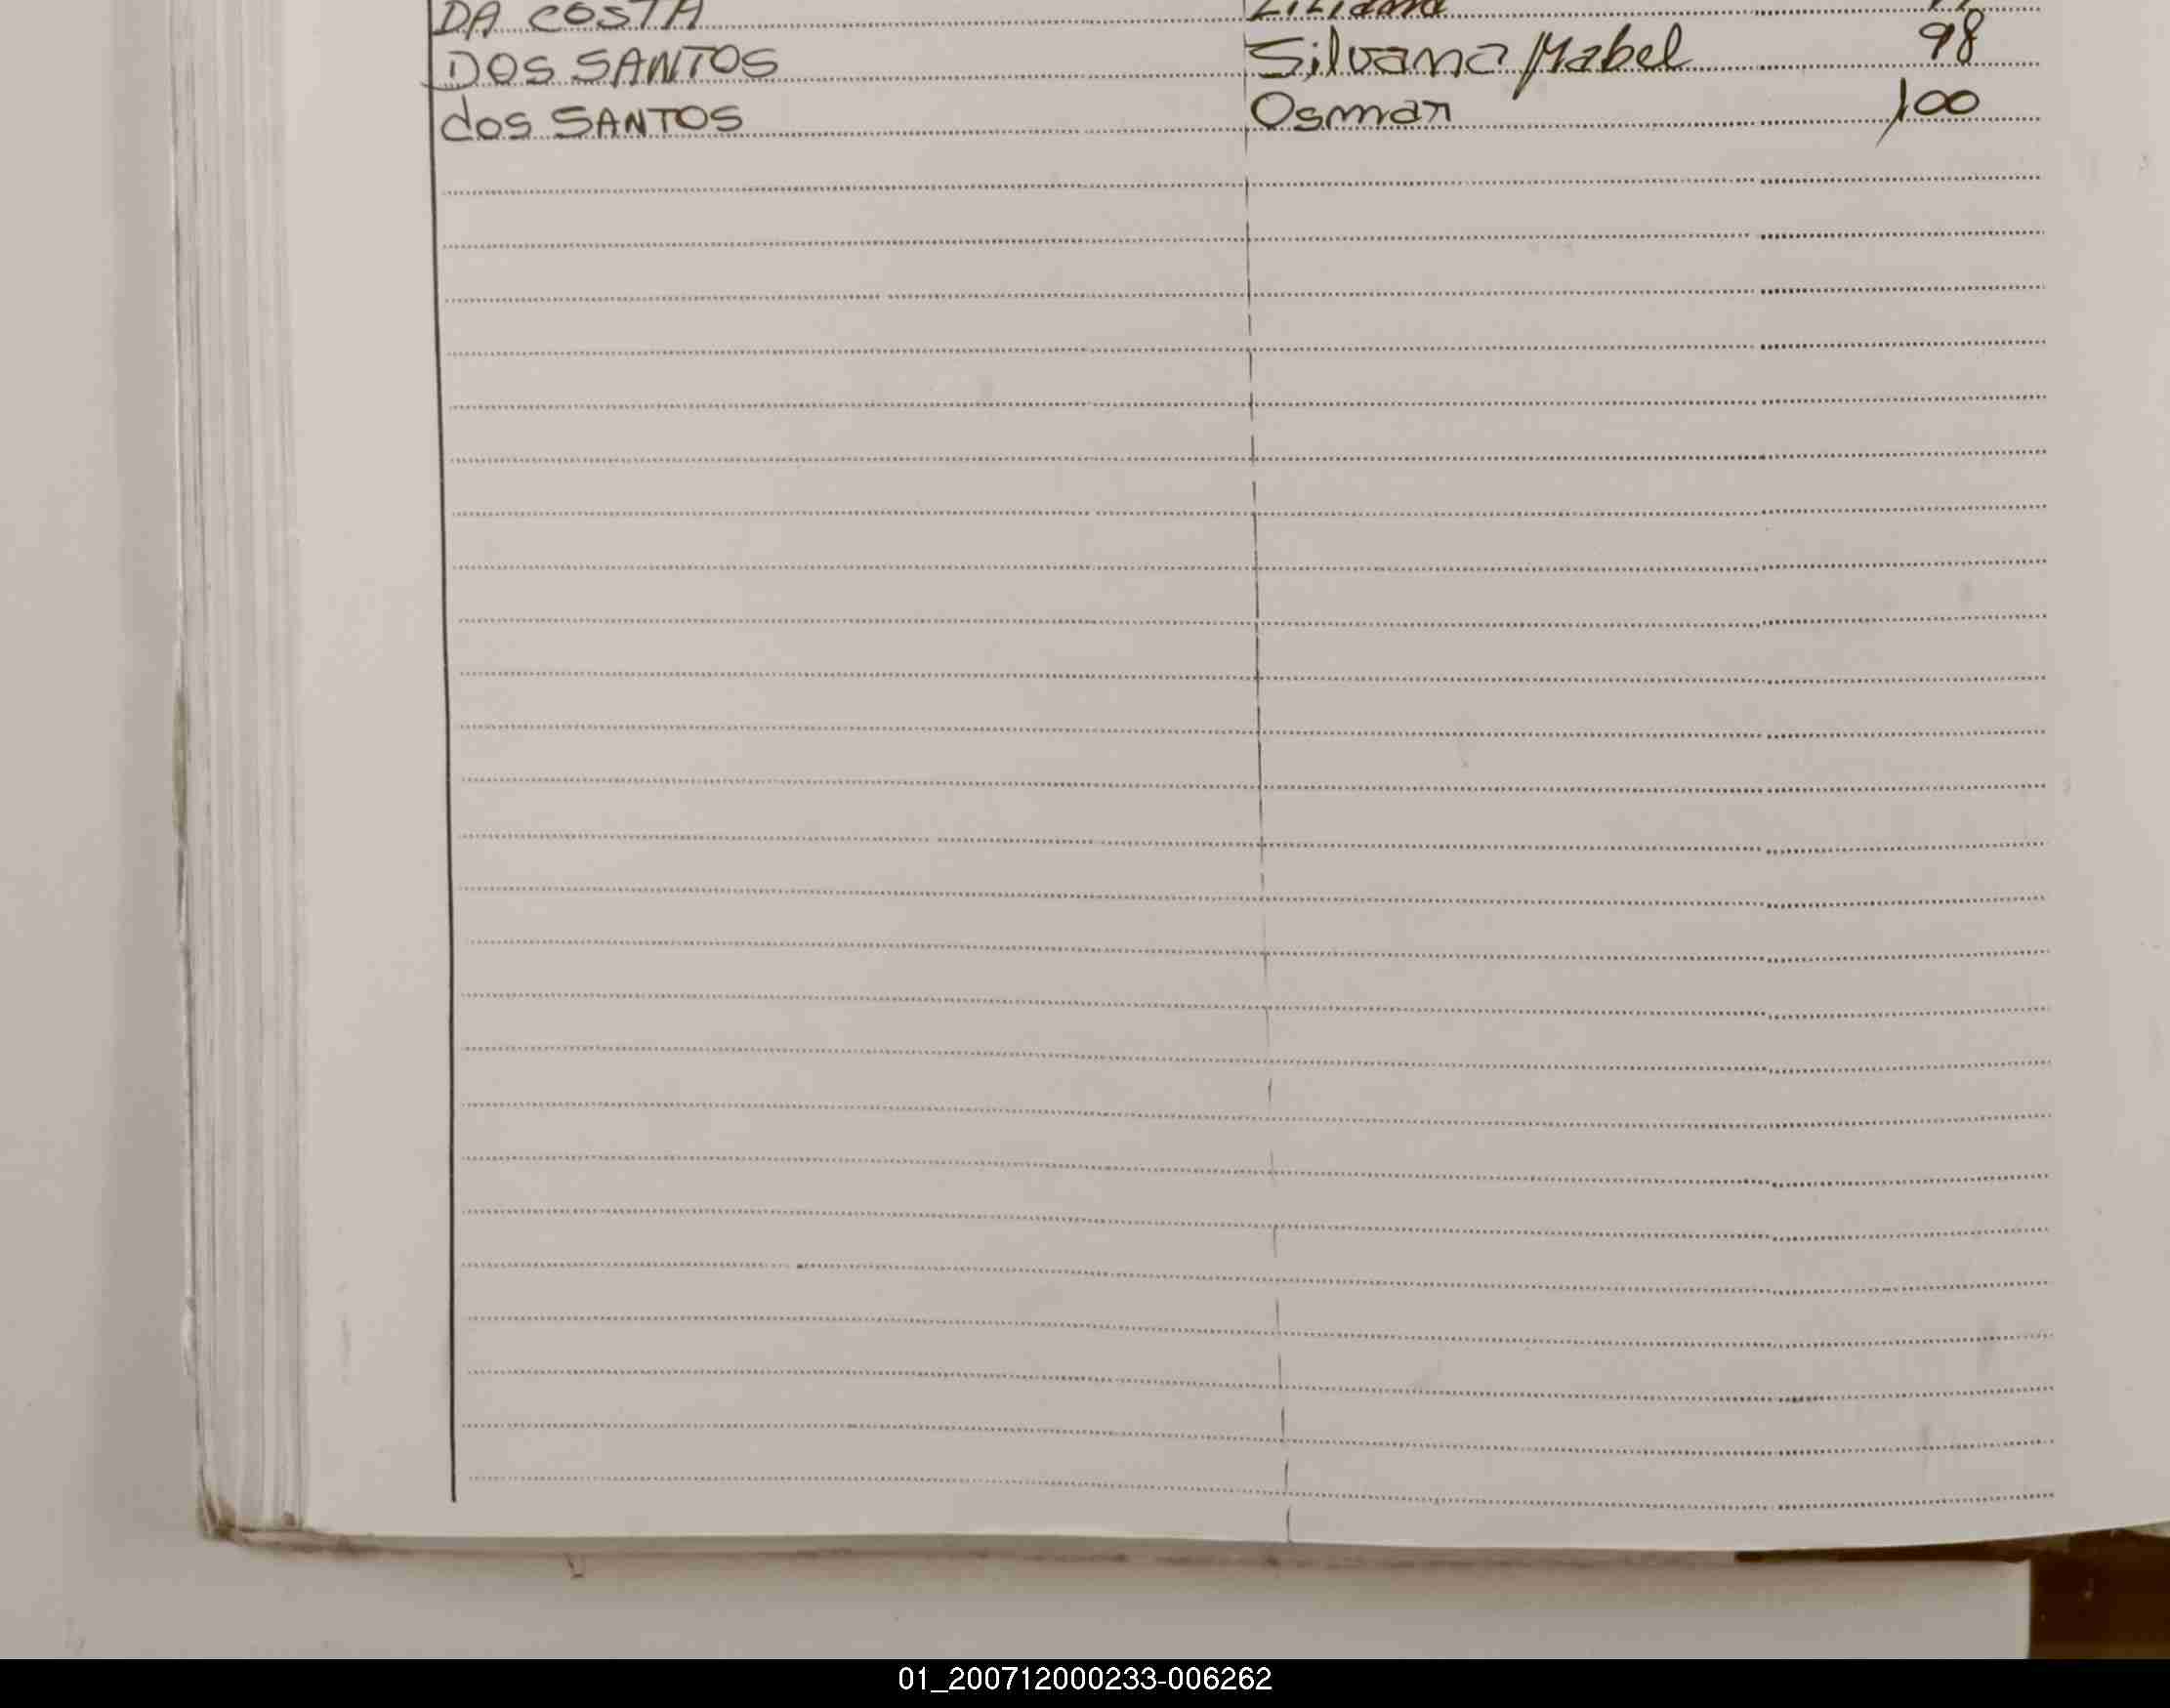 DA COSTA Liliana
DOS SANTOS Silvana Mabel 98
dos SANTOS Osmar 100
01_200712000233-006262